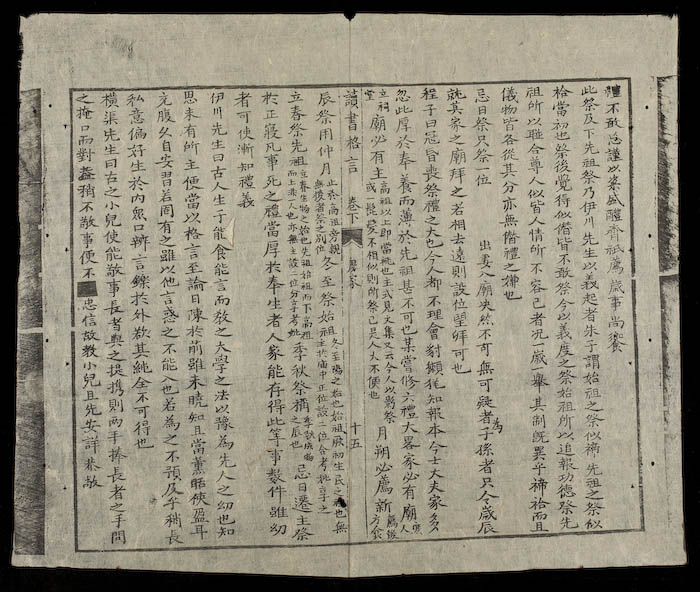 禮不敢怠謹以粢盛醴齊祇薦歲事尚饗
此祭及下先祖祭乃伊川先生以義起者朱子謂始祖之祭似禘先祖之祭似
祫當初也祭後覺得似僭皆不敢祭今以義度之祭始祖所以追報功德祭先
祖所以聯合尊人似皆人情所不容已者况一歲一舉其制既異乎禘祫而且
儀物皆各從其分亦無僭禮之獘也
忌日祭只祭一位 出妻入廟決然不可無可疑者為子孫者只合歲辰
就其家之廟拜之若相去遠則設位望拜可也
程子曰冠昏喪祭禮之大也今人都不理會豺獺猶知報本今士大夫家多
忽此厚於奉養而薄於先祖甚不可也某嘗修六禮大畧家必有廟庶人
立祠堂廟必有主高祖以上即當祧也主式見文集又云今人以影祭或一髭髮不相似則所祭已是人大不便也月朔必薦新薦後方食
讀書格言 卷下 畧家 十五
辰祭用仲月止於高祖旁親無後者祭之別位冬至祭始祖冬至陽之始也始祖厥初生民之祖也無主於廟中正位設一位合考妣享之
立春祭先祖立春生物之始也先祖始祖而下高祖而上非一人也亦無主設二位分享考妣季秋祭禰季秋成物之辰也忌日遷主祭
於正寢凡事死之禮當厚於奉生者人家能存得此等事數件雖幼
者可使漸知禮義
伊川先生曰古人生子能食能言而敎之大學之法以豫為先人之幼也知
思未有所主便當以格言至論日陳於前雖未曉知且當薰聒使盈耳
充腹久自安習若固有之雖以他言惑之不能入也若為之不預及乎稍長
私意偏好生於內眾口辨言鑠於外欲其純全不可得也
橫渠先生曰古之小兒便能敬事長者與之提攜則兩手捧長者之手問
之掩口而對蓋稍不敬事便不忠信故教小兒且先安詳恭敬